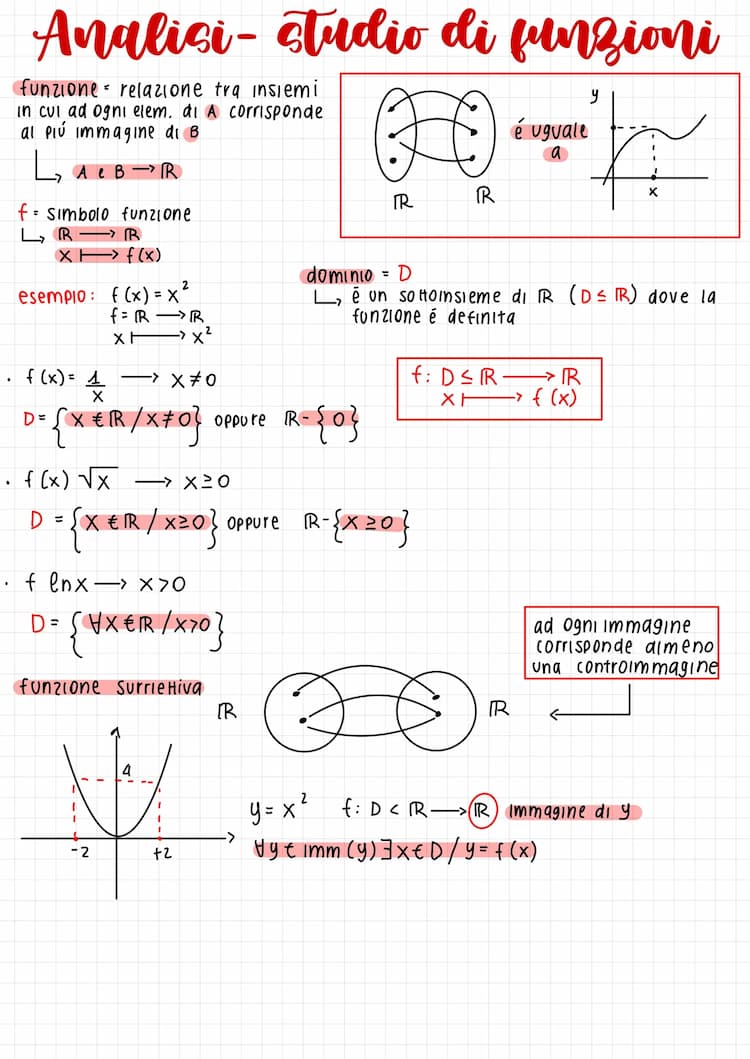 Analisi - studio di funzioni
funzione = relazione tra insiemi
in cui ad ogni elem. di A corrisponde
al piú immagine di B
A e B → ℝ
y
é uguale
a
x
ℝ
ℝ
f = simbolo funzione
ℝ → ℝ
x ↦ f(x)
dominio = D
é un sottoinsieme di ℝ (D ≤ ℝ) dove la
funzione é definita
esempio: f(x) = x²
f = ℝ → ℝ
x ↦ x²
f: D ≤ ℝ → ℝ
x ↦ f(x)
• f(x) = 1/x → x ≠ 0
D = {x € ℝ / x ≠ 0} oppure ℝ - {0}
• f(x) √x → x ≥ 0
D = {x € ℝ / x ≥ 0} oppure ℝ - {x ≥ 0}
• f lnx → x > 0
D = {∀x € ℝ / x > 0}
ad ogni immagine
corrisponde almeno
una controimmagine
funzione surriettiva
ℝ
ℝ
4
-2
+2
y = x² f: D < ℝ → ℝ immagine di y
∀y € imm (y) ∃x € D / y = f(x)